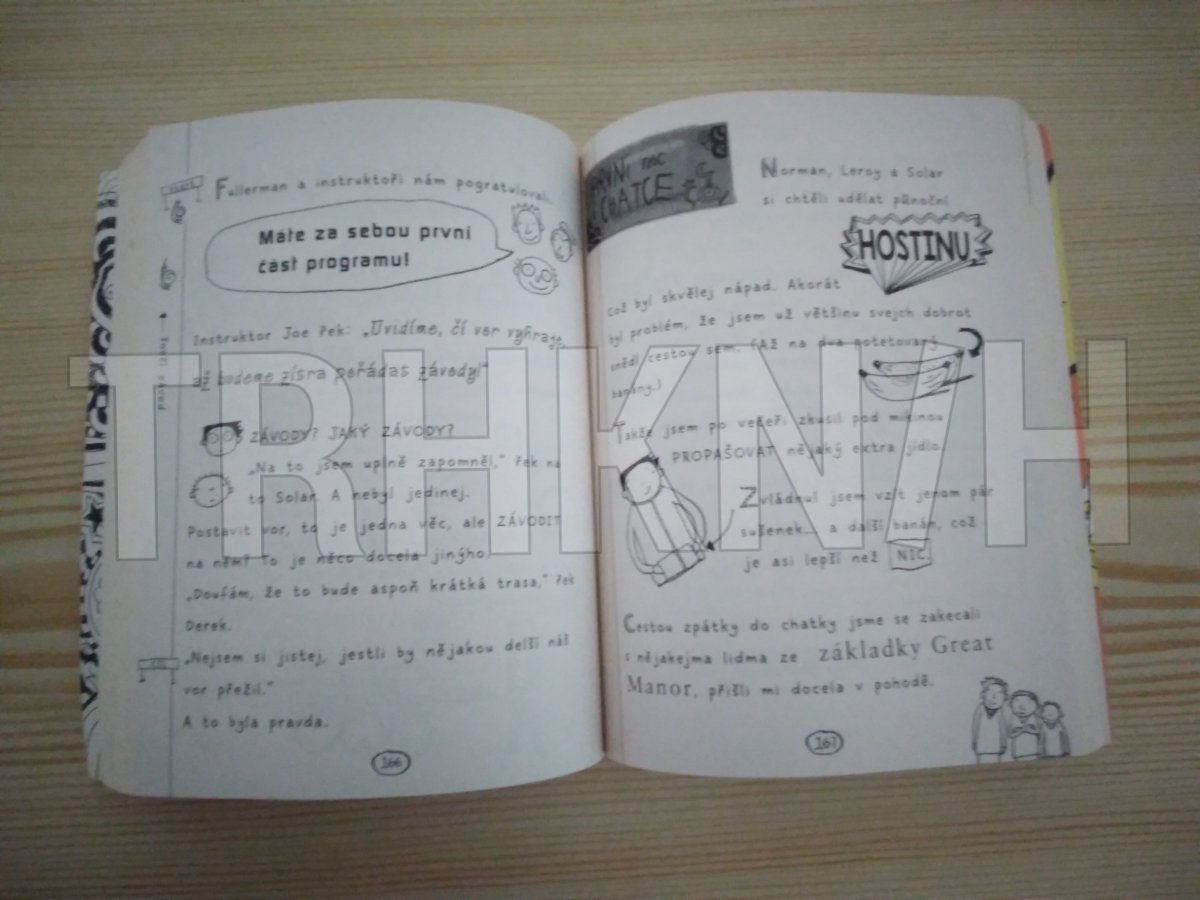 START
Fullerman a instruktoři nám pogratulovali.
Máte za sebou první
část programu!
Instruktor Joe řek: „Uvidíme, čí vor vyhraje,
až budeme zísra pořádas závody!“
ZÁVODY? JAKÝ ZÁVODY?
„Na to jsem uplně zapomněl,“ řek na
to Solar. A nebyl jedinej.
Postavit vor, to je jedna věc, ale ZÁVODIT
na něm? To je něco docela jinýho.
„Doufám, že to bude aspoň krátká trasa,“ řek
Derek.
„Nejsem si jistej, jestli by nějakou delší náš
vor přežil.“
A to byla pravda.
CÍL
166
PRVNÍ noc
CHATCE
Norman, Leroy a Solar
si chtěli udělat půlnoční
HOSTINU.
Což byl skvělej nápad. Akorát
byl problém, že jsem už většinu svejch dobrot
snědl cestou sem. (Až na dva potetovaný
banány.)
Takže jsem po večeři zkusil pod mikinou
PROPAŠOVAT nějaký extra jídlo.
Zvládnul jsem vzít jenom pár
sušenek... a další banán, což
je asi lepší než NIC.
Cestou zpátky do chatky jsme se zakecali
s nějakejma lidma ze základky Great
Manor, přišli mi docela v pohodě.
167
TRHKNIH